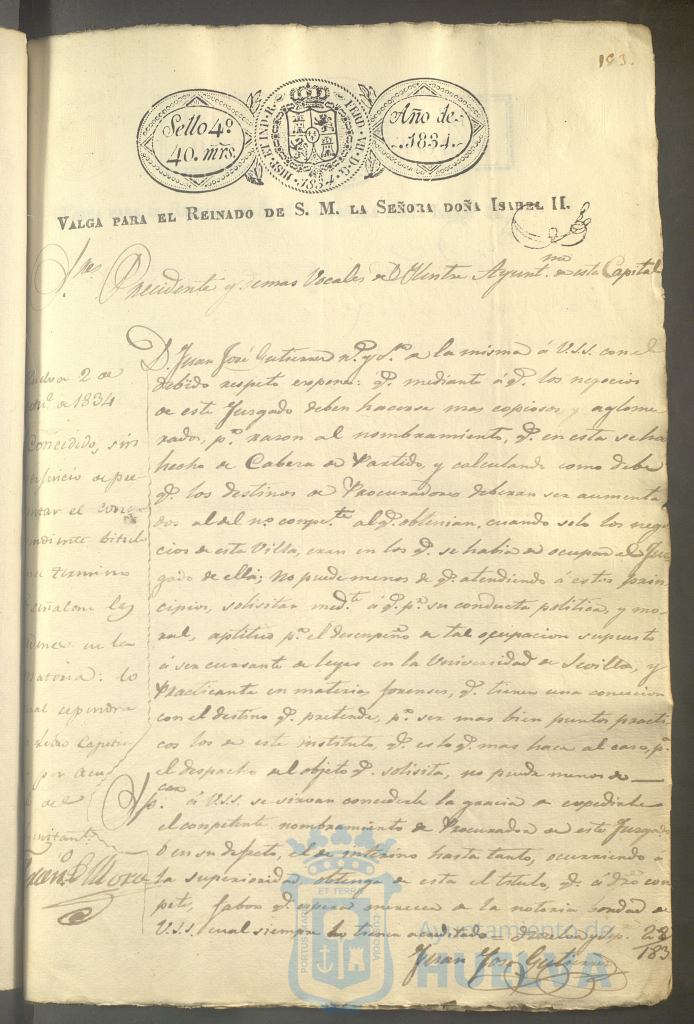 193.
Sello 4º
40. mrs.
HISP. ET IND. R. FERD. VII. D. G. 1834.
Año de
1834.
VALGA PARA EL REINADO DE S. M. LA SEÑORA DOÑA ISABEL II.
Sres Precidente y demas Vocales del Ylustre Ayuntmto de esta Capital
D. Juan José Gutierrez nl. y vº. de la misma á V.S.S. con el
debido respeto expone: qe. mediante á qe. los negocios
de este Juzgado deben hacerse mas copiosos, y aglome-
rados, pr. razon al nombramiento, qe. en esta se ha
hecho de Cabeza de Partido, y calculando como debe
qe. los destinos de Procuradores deberan ser aumenta-
dos al del nº. compte. al qe. obtenian, cuando solo los nego-
cios de esta Villa, eran en los qe. se habia de ocupar el Juz-
gado de ella; no puede menos de qe. atendiendo á estos prin-
cipios, solicitar medte. á qe. pr. su conducta politica, y mo-
ral, aptitud pa. el desempeño de tal ocupacion supuesto
á ser cursante de leyes en la Universidad de Sevilla, y
Practicante en materias forenses, qe. tienen una coneccion
con el destino qe. pretende, pr. ser mas bien puntos practi-
cos los de este instituto, qe. es lo qe. mas hace al caso, pa.
el despacho del objeto qe. solicita, no puede menos de
Spcar. á V.S.S. se sirvan concederle la gracia de expedirle
el competente nombramiento de Procurador de este Juzgado
ó en su defecto, el de interino hasta tanto, ocurriendo á
la superioridad obtenga de esta el titulo, qe. á dro. com-
pete, fabor qe. espera merecer de la notoria bondad de
V.S.S. cual siempre lo tiene acreditado
Juan José Gutierrez
2 de
de 1834
Concedido, sin
perjuicio de pre-
sentar el corres-
pondiente titulo
en el termino
señalan las
ordenes en la
materia: lo
PORTUS MARIS ET TERRAE CUSTODIA
Ayuntamiento de
HUELVA